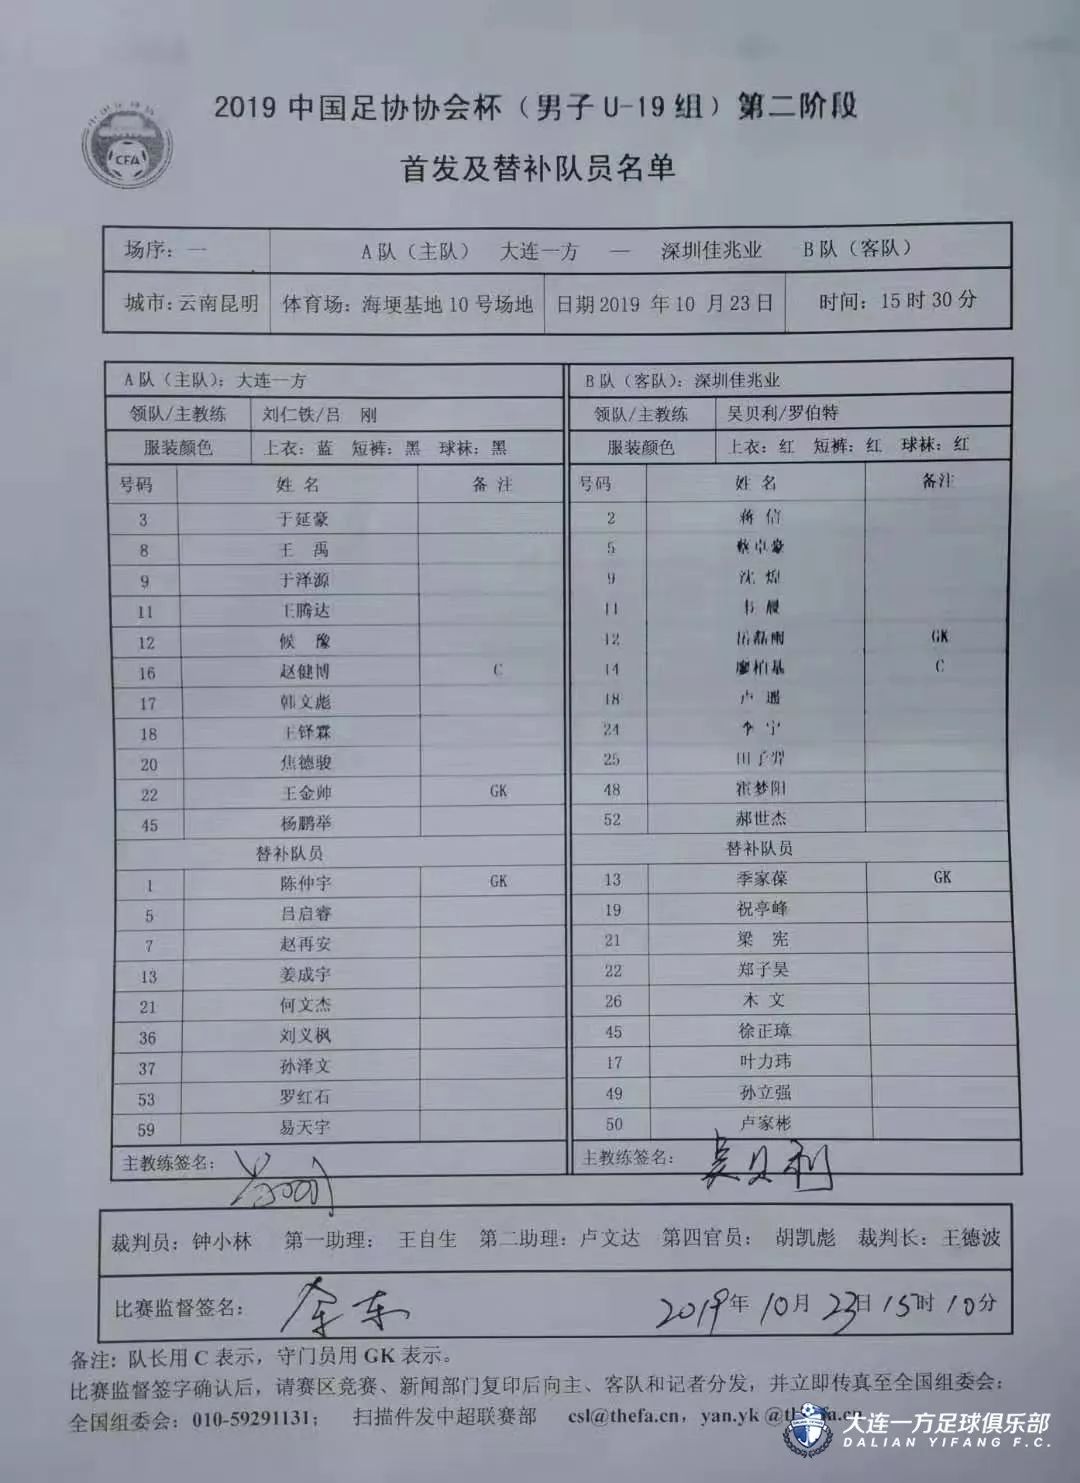 2019 中国足协协会杯（男子 U-19 组）第二阶段
CFA
首发及替补队员名单
场序：一 A队（主队） 大连一方 — 深圳佳兆业 B队（客队）
城市：云南昆明 体育场：海埂基地 10 号场地 日期 2019 年 10 月 23 日 时间：15 时 30 分
A队（主队）：大连一方 B队（客队）：深圳佳兆业
领队/主教练 刘仁铁/吕 刚 领队/主教练 吴贝利/罗伯特
服装颜色 上衣：蓝 短裤：黑 球袜：黑 服装颜色 上衣：红 短裤：红 球袜：红
号码 姓 名 备 注 号码 姓 名 备注
3 于延豪 2 蒋 信
8 王 禹 5 蔡卓豪
9 于洋源 9 沈 煌
11 王腾达 11 韦 晨
12 候 豫 12 磊雨 GK
16 赵健博 C 14 廖柏基 C
17 韩文彪 18 卢 遥
18 王铎霖 24 李 宁
20 焦德骏 25 田子羿
22 王金帅 GK 48 翟梦阳
45 杨鹏举 52 郝世杰
替补队员 替补队员
1 陈仲宇 GK 13 季家葆 GK
5 吕启睿 19 祝亭峰
7 赵再安 21 梁 宪
13 姜成宇 22 郑子昊
21 何文杰 26 木 文
36 刘义枫 45 徐正璋
37 孙泽文 17 叶力玮
53 罗红石 49 孙立强
59 易天宇 50 卢家彬
主教练签名： 主教练签名：吴贝利
裁判员：钟小林 第一助理： 王自生 第二助理：卢文达 第四官员： 胡凯彪 裁判长：王德波
比赛监督签名： 2019年 10月 23日 15时 10分
备注：队长用 C 表示，守门员用 GK 表示。
比赛监督签字确认后，请赛区竞赛、新闻部门复印后向主、客队和记者分发，并立即传真至全国组委会：
全国组委会：010-59291131； 扫描件发中超联赛部 csl@thefa.cn，yan.yk @thefa.cn
大连一方足球俱乐部
DALIAN YIFANG F.C.